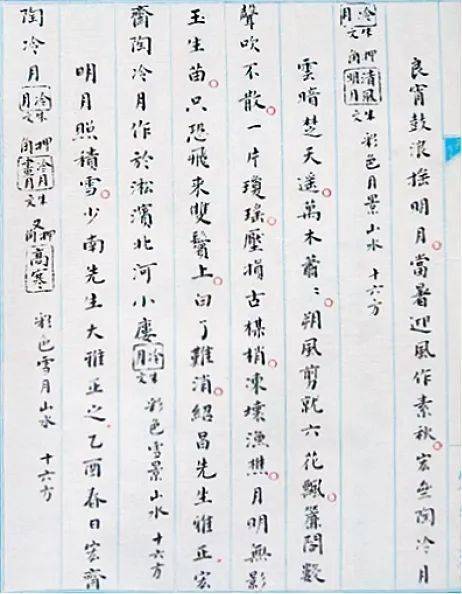 良宵鼓浪搖明月當暑迎風作素秋宏垒陶冷月
冷月朱文押角清風明月朱文彩色月景山水 十六方
雲暗楚天遙萬木蕭〻朔風剪就六花飄簫問數
聲吹不散一片瓊瑤壓損古楳梢凍壞漁樵月明無影
玉生苗只恐飛來雙鬢上白了難消紹昌先生雅正宏
齋陶冷月作於淞濱北河小廔冷月朱文彩色雪景山水 十六方
明月照積雪少南先生大雅正之乙酉春日宏齋
陶冷月冷月朱文押角冷月畫月朱文又押角高寒 彩色雪月山水 十六方